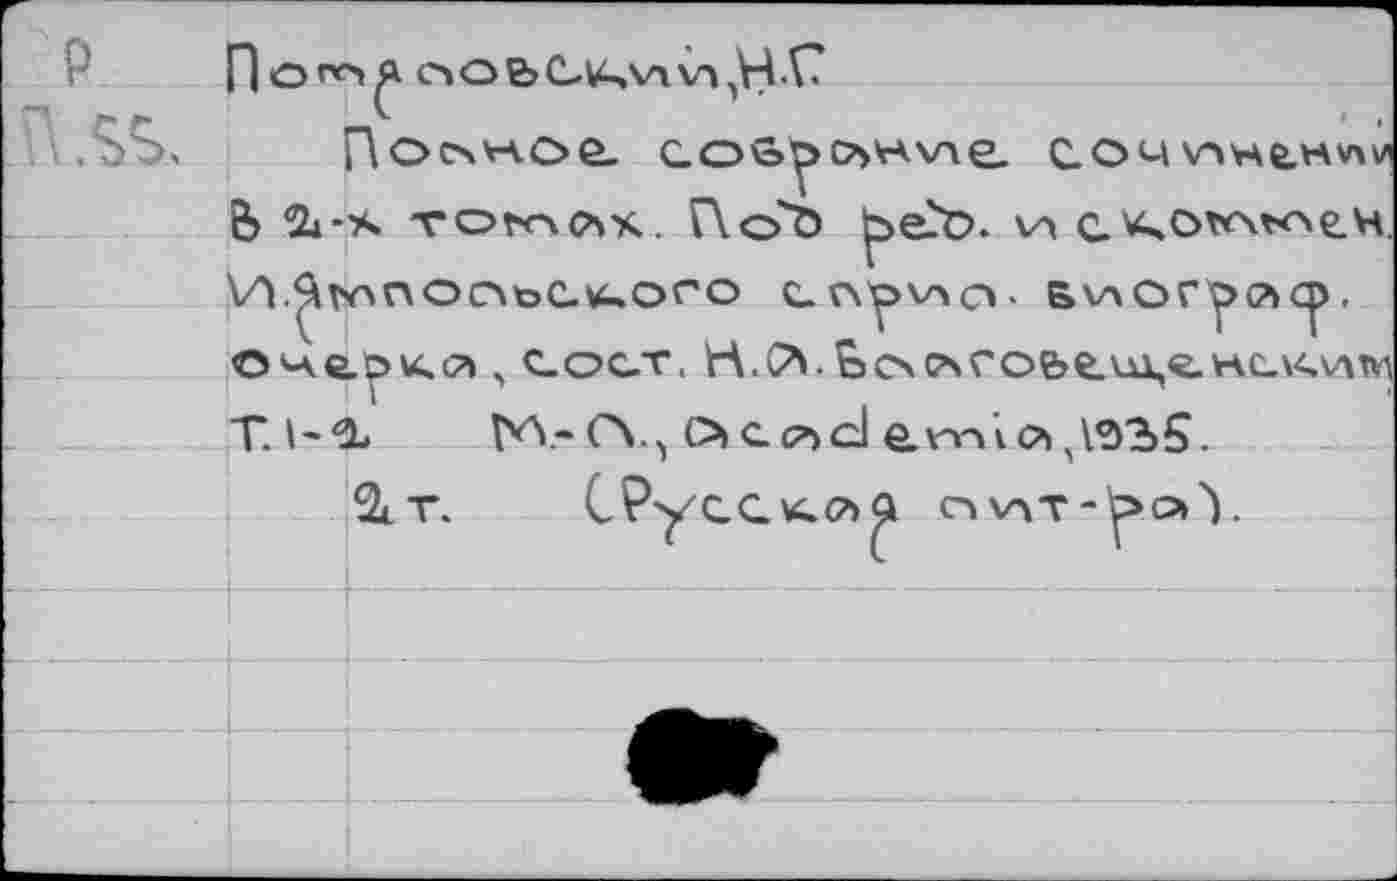 Р
П.55.
Помяловский, Н.Г.
Полное собрание сочинений
в 2-х томах. Под ред. и с коммен.
И.Ямпольского с прил. биограф.
очерка, сост. Н.А. Благовещенским
Т.1-2 М.-Л., Academia, 1935.
2 т. (Русская лит-ра).